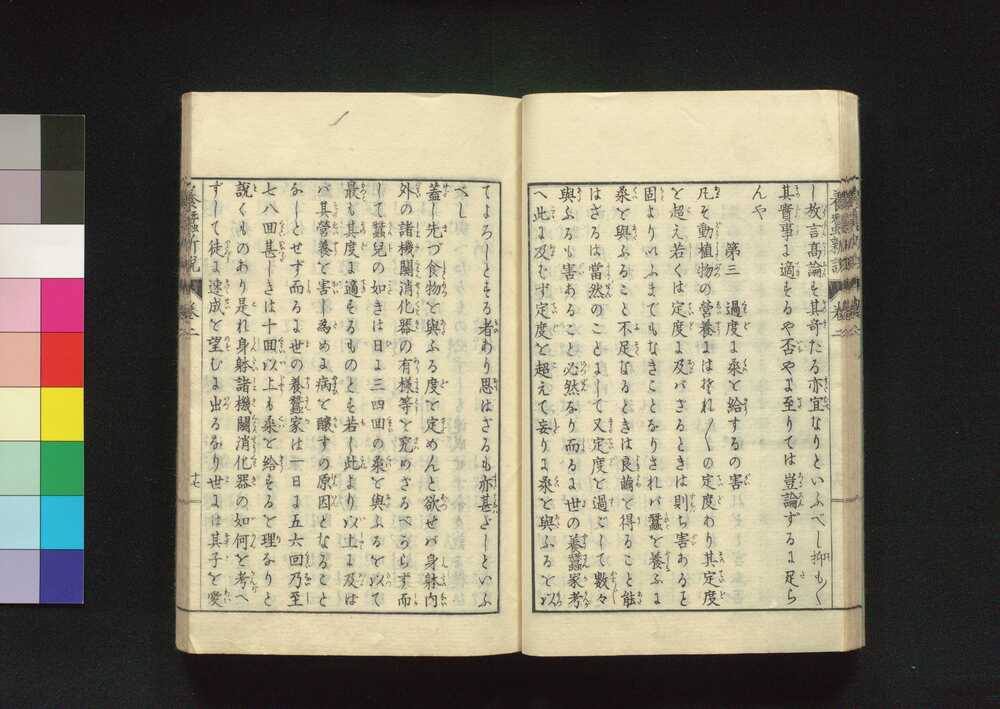 し放言高論も其奇たる亦宜なりといふべし抑も〱
其實事に適するや否やに至りては豈論ずるに足ら
んや
第三　過度に桑を給するの害
凡そ動植物の營養には夫れ〱の定度あり其定度
を超え若くは定度に及バざるときは則ち害あるを
固よりいふまでもなきことなりされバ蠶を養ふに
桑を與ふること不足なるときは良繭を得ること能
はざるは當然のことにして又定度を過ごして數々
與ふるも害あること必然なり而るに世の養蠶家考
へ此に及ばず定度を超えて妄りに桑を與ふるを以
てよろしとする者あり思はざるも亦甚どしといふ
べし
蓋し先づ食物を與ふる度を定めんと欲せバ身躰内
外の諸機關消化器の有樣等を究めざるべからず而
して蠶兒の如きは日に三四回の桑を與ふるを以て
最も其度に適するものとす若し此より以上に及は
バ其營養を害し為めに病を釀すの原因となること
なしとせず而るに世の養蠶家は一日に五六回乃至
七八回甚しきは十回以上も桑を給するを理なりと
說くものあり是れ身躰諸機關消化器の如何を考へ
ずして徒に速成を望むに出るなり世には其子を愛
養蠶新說
卷二
十七